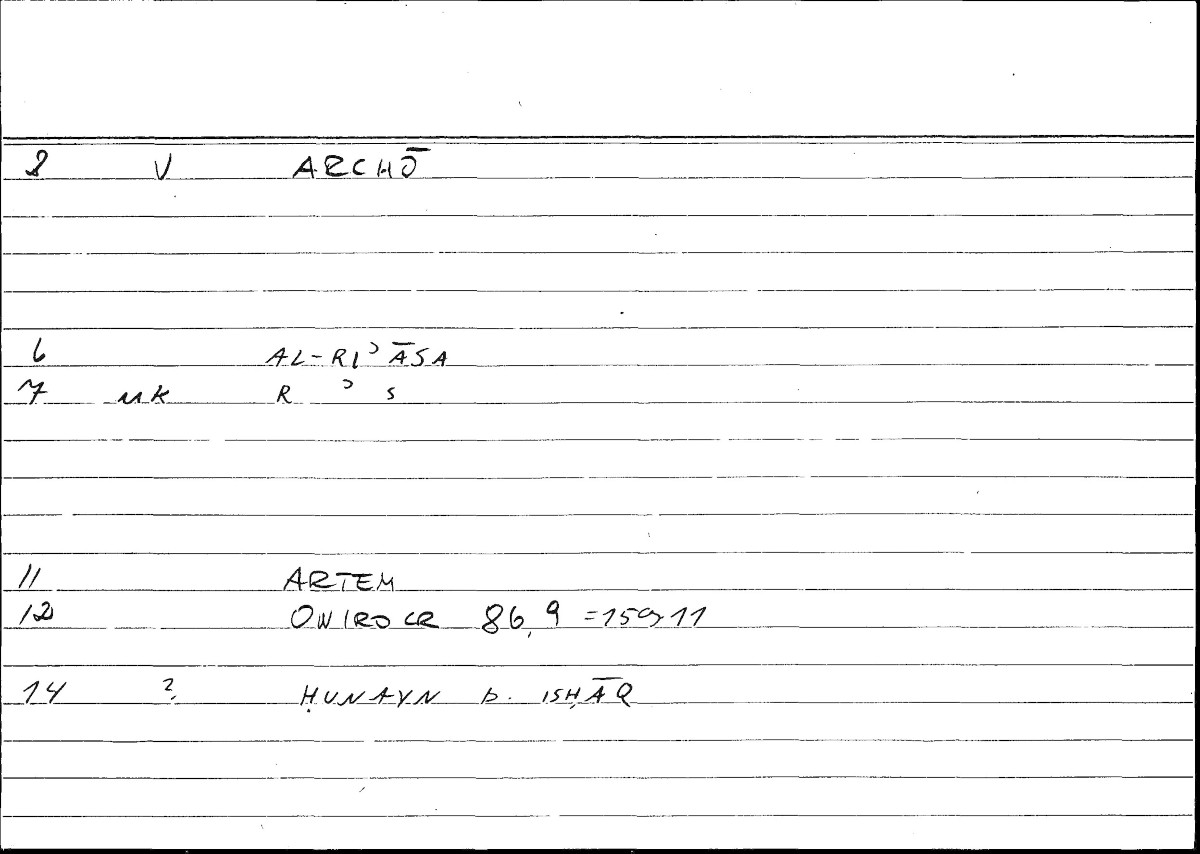 2 V ARCHŌ
6 AL-RIʾĀSA
7 MK R ʾ S
11 ARTEM
12 ONIROCR 86,9 = 159,11
14 ? ḤUNAYN b. ISḤĀQ